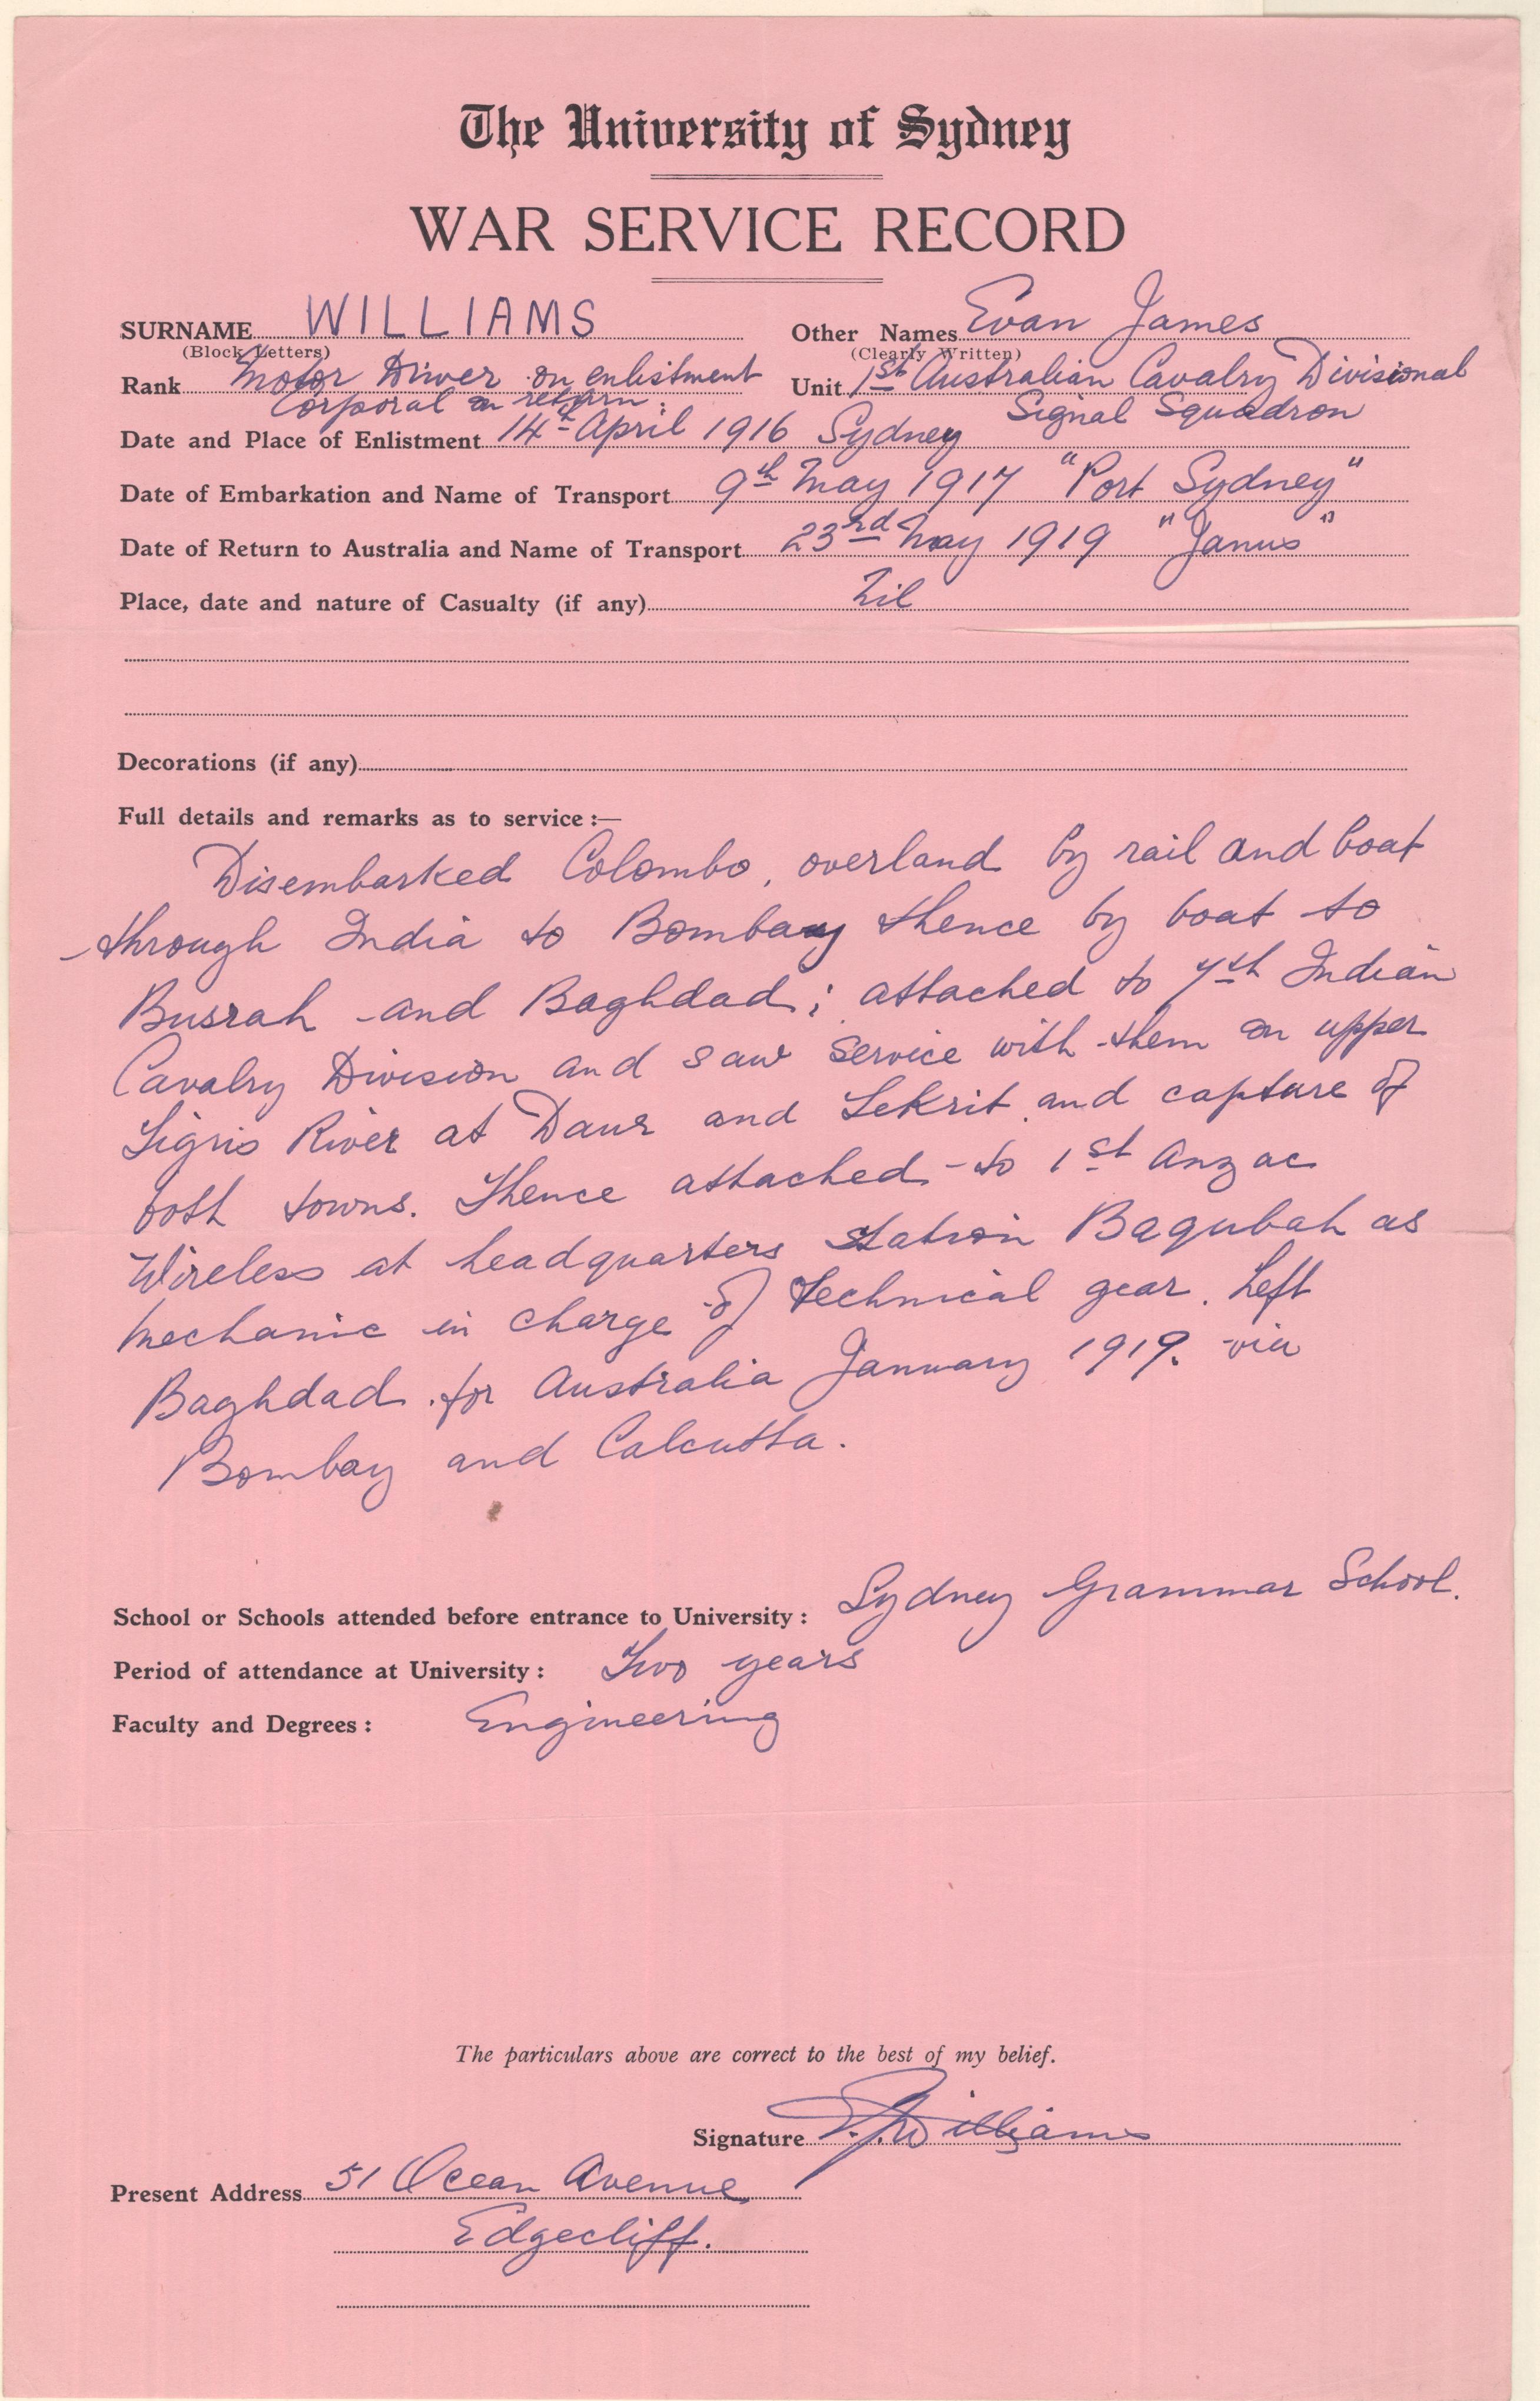 The University of Sydney
WAR SERVICE RECORD
SURNAME WILLIAMS Other Names Evan James
(Block Letters) (Clearly Written)
Rank Motor Driver on enlistment Unit 1st Australian Cavalry Divisional
Corporal on return. Signal Squadron
Date and Place of Enlistment 14th April 1916 Sydney
Date of Embarkation and Name of Transport 9th May 1917 "Port Sydney"
Date of Return to Australia and Name of Transport 23rd May 1919 "Janus"
Place, date and nature of Casualty (if any) Nil
Decorations (if any)
Full details and remarks as to service :—
Disembarked Colombo, overland by rail and boat
through India to Bombay thence by boat to
Busrah and Baghdad; attached to 7th Indian
Cavalry Division and saw service with them on upper
Tigris River at Daur and Tekrit and capture of
both towns. Thence attached to 1st Anzac
Wireless at headquarters station Baqubah as
mechanic in charge of technical gear. Left
Baghdad for Australia January 1919. via
Bombay and Calcutta.
School or Schools attended before entrance to University : Sydney Grammar School.
Period of attendance at University : Two years
Faculty and Degrees : Engineering
The particulars above are correct to the best of my belief.
Signature E.J. Williams
Present Address 51 Ocean Avenue
Edgecliff.